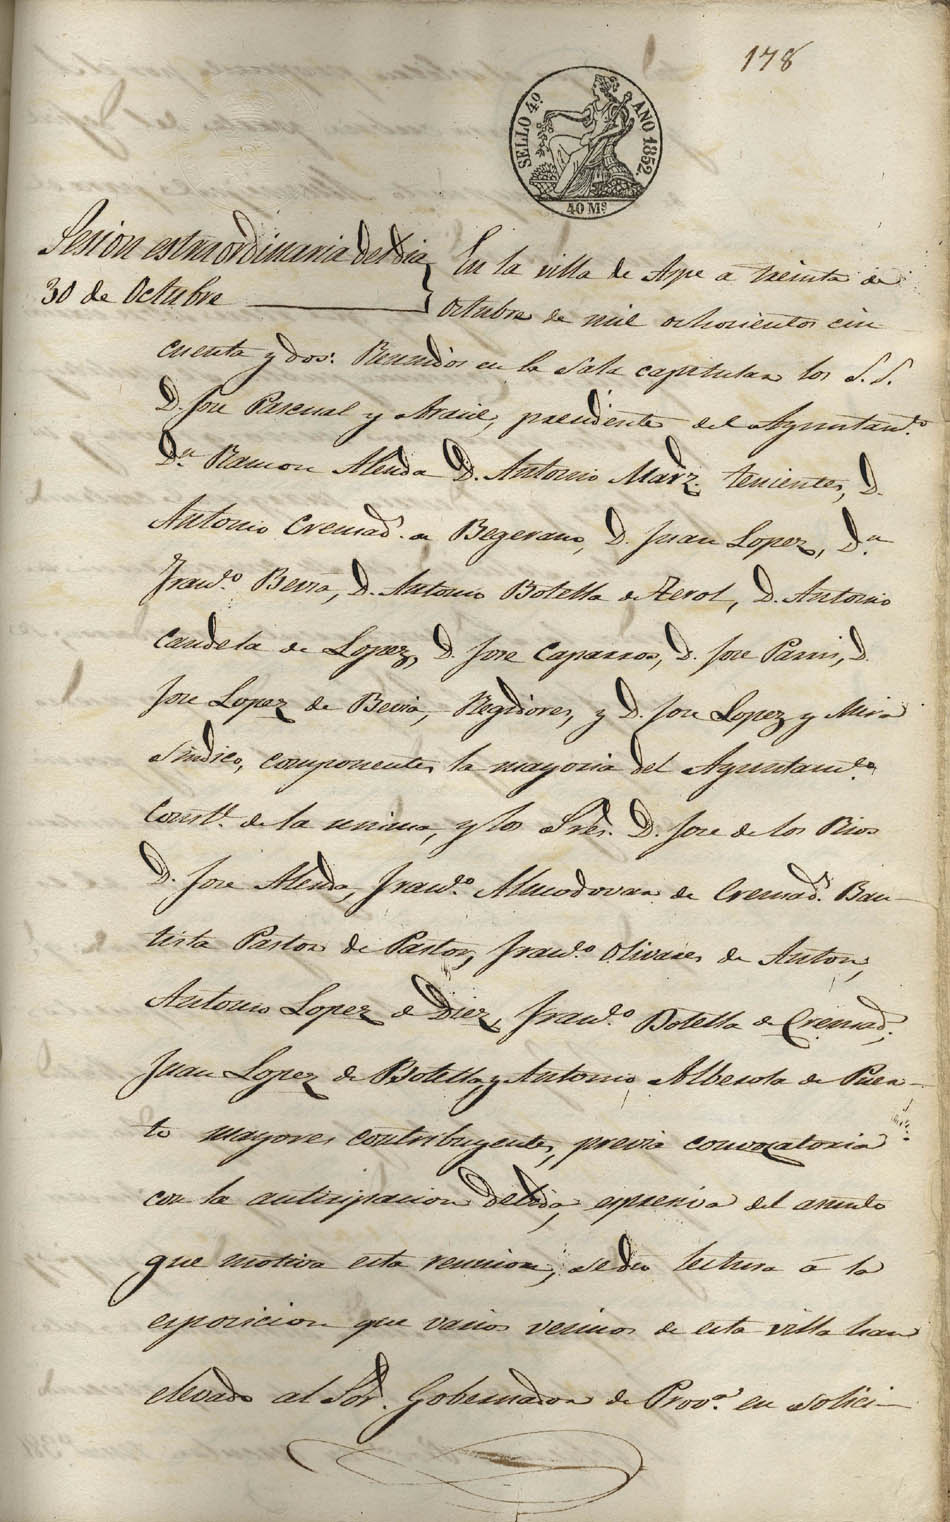 178
SELLO 4º. AÑO 1852.
40 Ms
Sesion estraordinaria del dia
30 de Octubre
En la villa de Aspe a treinta de
Octubre de mil ochocientos cin
cuenta y dos: Reunidos en la Sala capitular los S.S.
D. Jose Pascual y , presidente del Ayuntamto.
Dn. Ramon Alenda D. Antonio Marz. tenientes, D.
Antonio Cremads. de Bezerano, D. Juan Lopez, Dn.
Franco. Bevia, D. Antonio Botella de Terol, D. Antonio
Candela de Lopez, D. Jose Caparros, D. Jose Pavis, D.
Jose Lopez de Bevia, Regidores, y D. Jose Lopez y Mira
Sindico, componentes la mayoria del Ayuntamto.
Constl. de la misma, y los Sres. D. Jose de los Rios
D. Jose Alenda, Franco. Almodovar de Cremads. Bau-
tista Pastor de Pastor, Franco. Olivares de Anton,
Antonio Lopez de Diez, Franco. Botella de Cremads.
Juan Lopez de Botella, y Antonio Alberola de Puen-
te mayores contribuyentes, previa convocatoria
con la anticipacion debida, espresiva del asunto
que motiva esta reunion, se dio lectura á la
esposicion que varios vecinos de esta villa han
elevado al Sor. Gobernador de Prova. en solici-